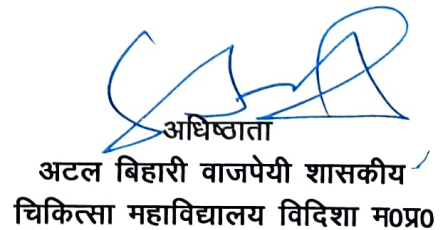 अधिष्ठाता
अटल बिहारी वाजपेयी शासकीय
चिकित्सा महाविद्यालय विदिशा म०प्र०